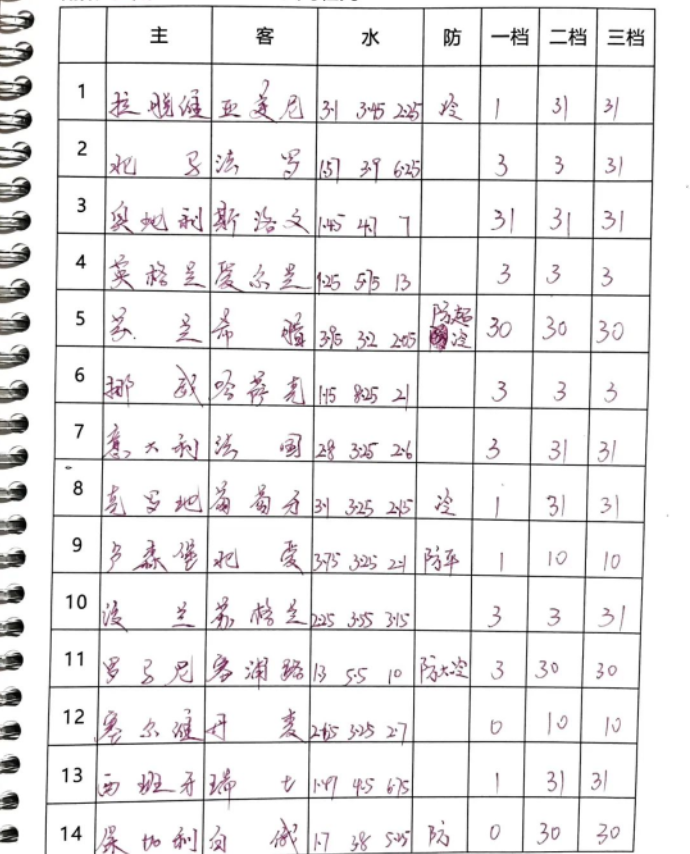 主 客 水 防 一档 二档 三档
1 拉脱维 亚美尼 3.1 3.45 2.25 冷 1 31 31
2 北马 法罗 1.57 3.9 6.25 3 3 31
3 奥地利 斯洛文 1.45 4.7 7 31 31 31
4 英格兰 爱尔兰 1.25 5.75 13 3 3 3
5 芬兰 希腊 3.95 3.2 2.05 防超冷 30 30 30
6 挪威 哈萨克 1.15 8.25 21 3 3 3
7 意大利 法国 2.8 3.25 2.6 3 31 31
8 克罗地 葡萄牙 3.1 3.25 2.45 冷 1 31 31
9 卢森堡 北爱 3.75 3.25 2.1 防平 1 10 10
10 波兰 苏格兰 2.25 3.55 3.15 3 3 31
11 罗马尼 塞浦路 1.3 5.5 10 防大冷 3 30 30
12 塞尔维 丹麦 2.65 3.25 2.7 0 10 10
13 西班牙 瑞士 1.47 4.5 6.75 1 31 31
14 保加利 白俄 1.7 3.8 5.25 防 0 30 30